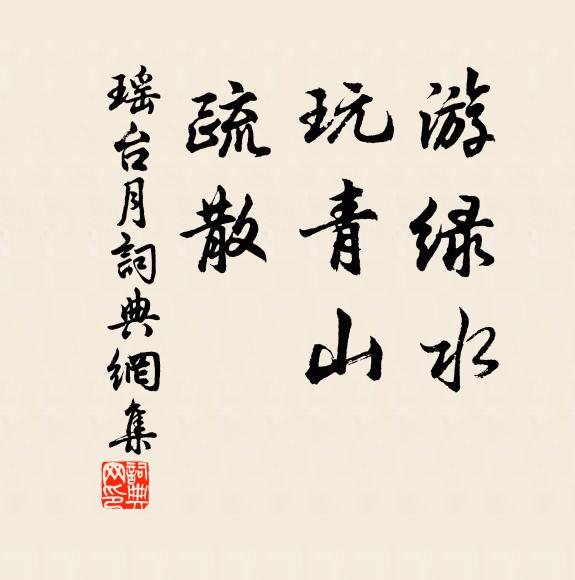 游绿水
玩青山
疏散
瑶台月詞典網集
詞典网印